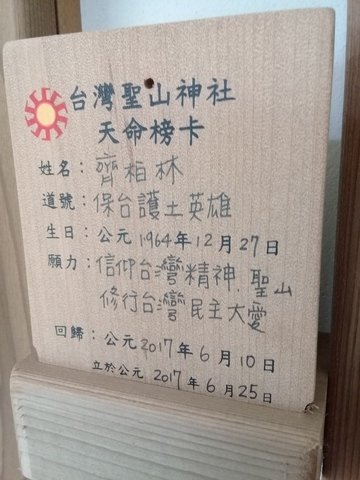 台灣聖山神社
天命榜卡
姓名：齊柏林
道號：保台護土英雄
生日：公元 1964年 12月 27日
願力：信仰台灣精神．聖山
修行台灣民主大愛
回歸：公元 2017年 6月 10日
立於公元 2017年 6月 25日